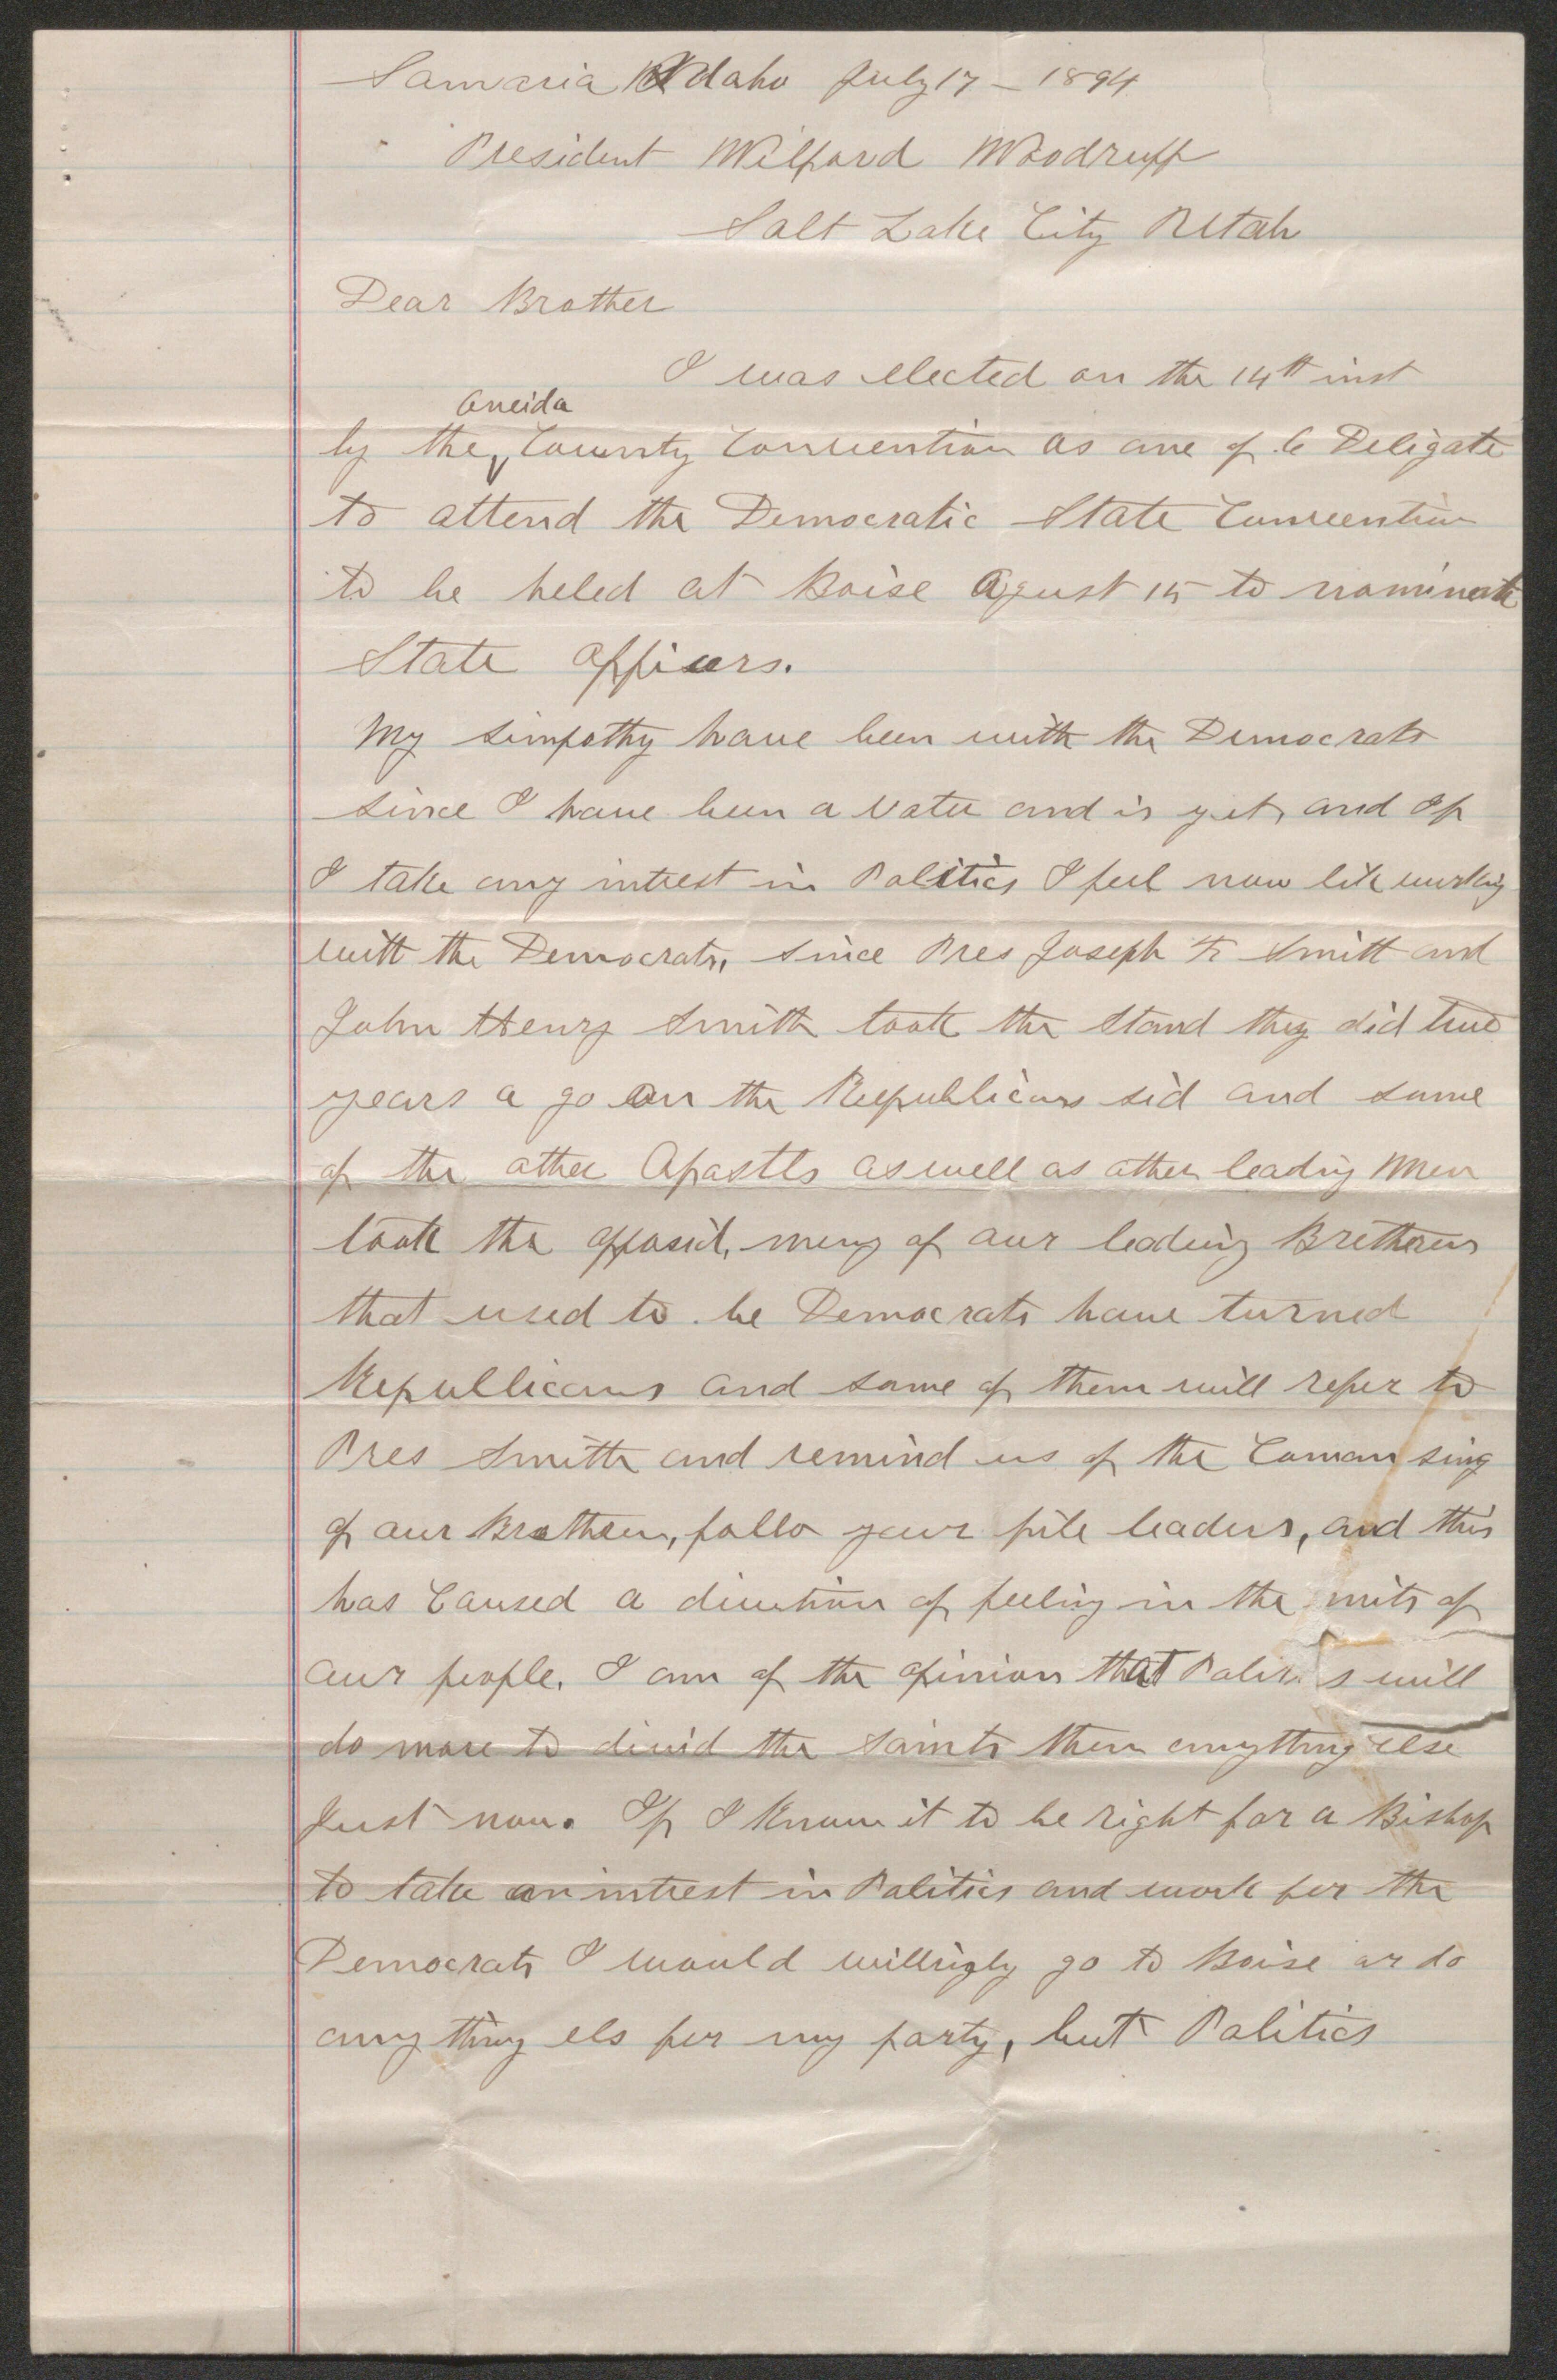 Samaria Idaho July 17 – 1894
President Wilford Woodruff
Salt Lake City Utah
Dear Brother
I was elected on the 14th inst
Oneida
by the County Convention as one of 6 Deligate
to attend the Democratic State Convention
to be heled at Boise Agust 15 to nominate
State officers.
My simpathy have been with the Democrats
since I have been a Voter and is yet, and If
I take any intrest in Politics I feel now like working
witt the Democrats, since Pres Joseph F Smitt and
John Henry Smith took the Stand they did two
years a go on the Republicans sid and some
of the other Apostls as well as other leading Men
took the opposid, meny of our leading Brethrens
that used to be Democrats have turned
Republicans and some of them will refer to
Pres Smith and remind us of the Coman sing
of our Brethren, follo your file leaders, and this
has Caused a divition of feeling in the mits of
our people. I am of the opinion that s will
do more to divid the Saints then anything else
Just now. If I Know it to be right for a Bishop
to take an intrest in Politics and work for the
Democrats I would willingly go to Boise or do
any thing els for my party, but Politics